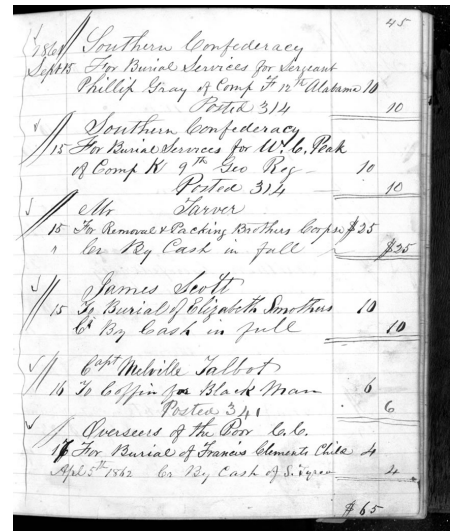 45
1861 Southern Confederacy
Sept 15 For Burial Services for Sergeant
Phillip Gray of Comp F 12th Alabama 10
Posted 314 10
Southern Confederacy
15 For Burial Services for W. C. Peak
of Comp K 9th Geo Reg — 10
Posted 314 10
Mr Tarver
15 For Removal & Packing Brothers Corpse $25
" Cr By Cash in full $25
James Scott
15 To Burial of Elizabeth Smothers 10
Cr By Cash in full 10
Capt Melville Talbot
16 To Coffin for Black Man 6
Posted 341 6
Overseers of the Poor C.C.
17 For Burial of Francis Clements Child 4
Apl 5th 1862 Cr By Cash of S. Tyree 4
$65